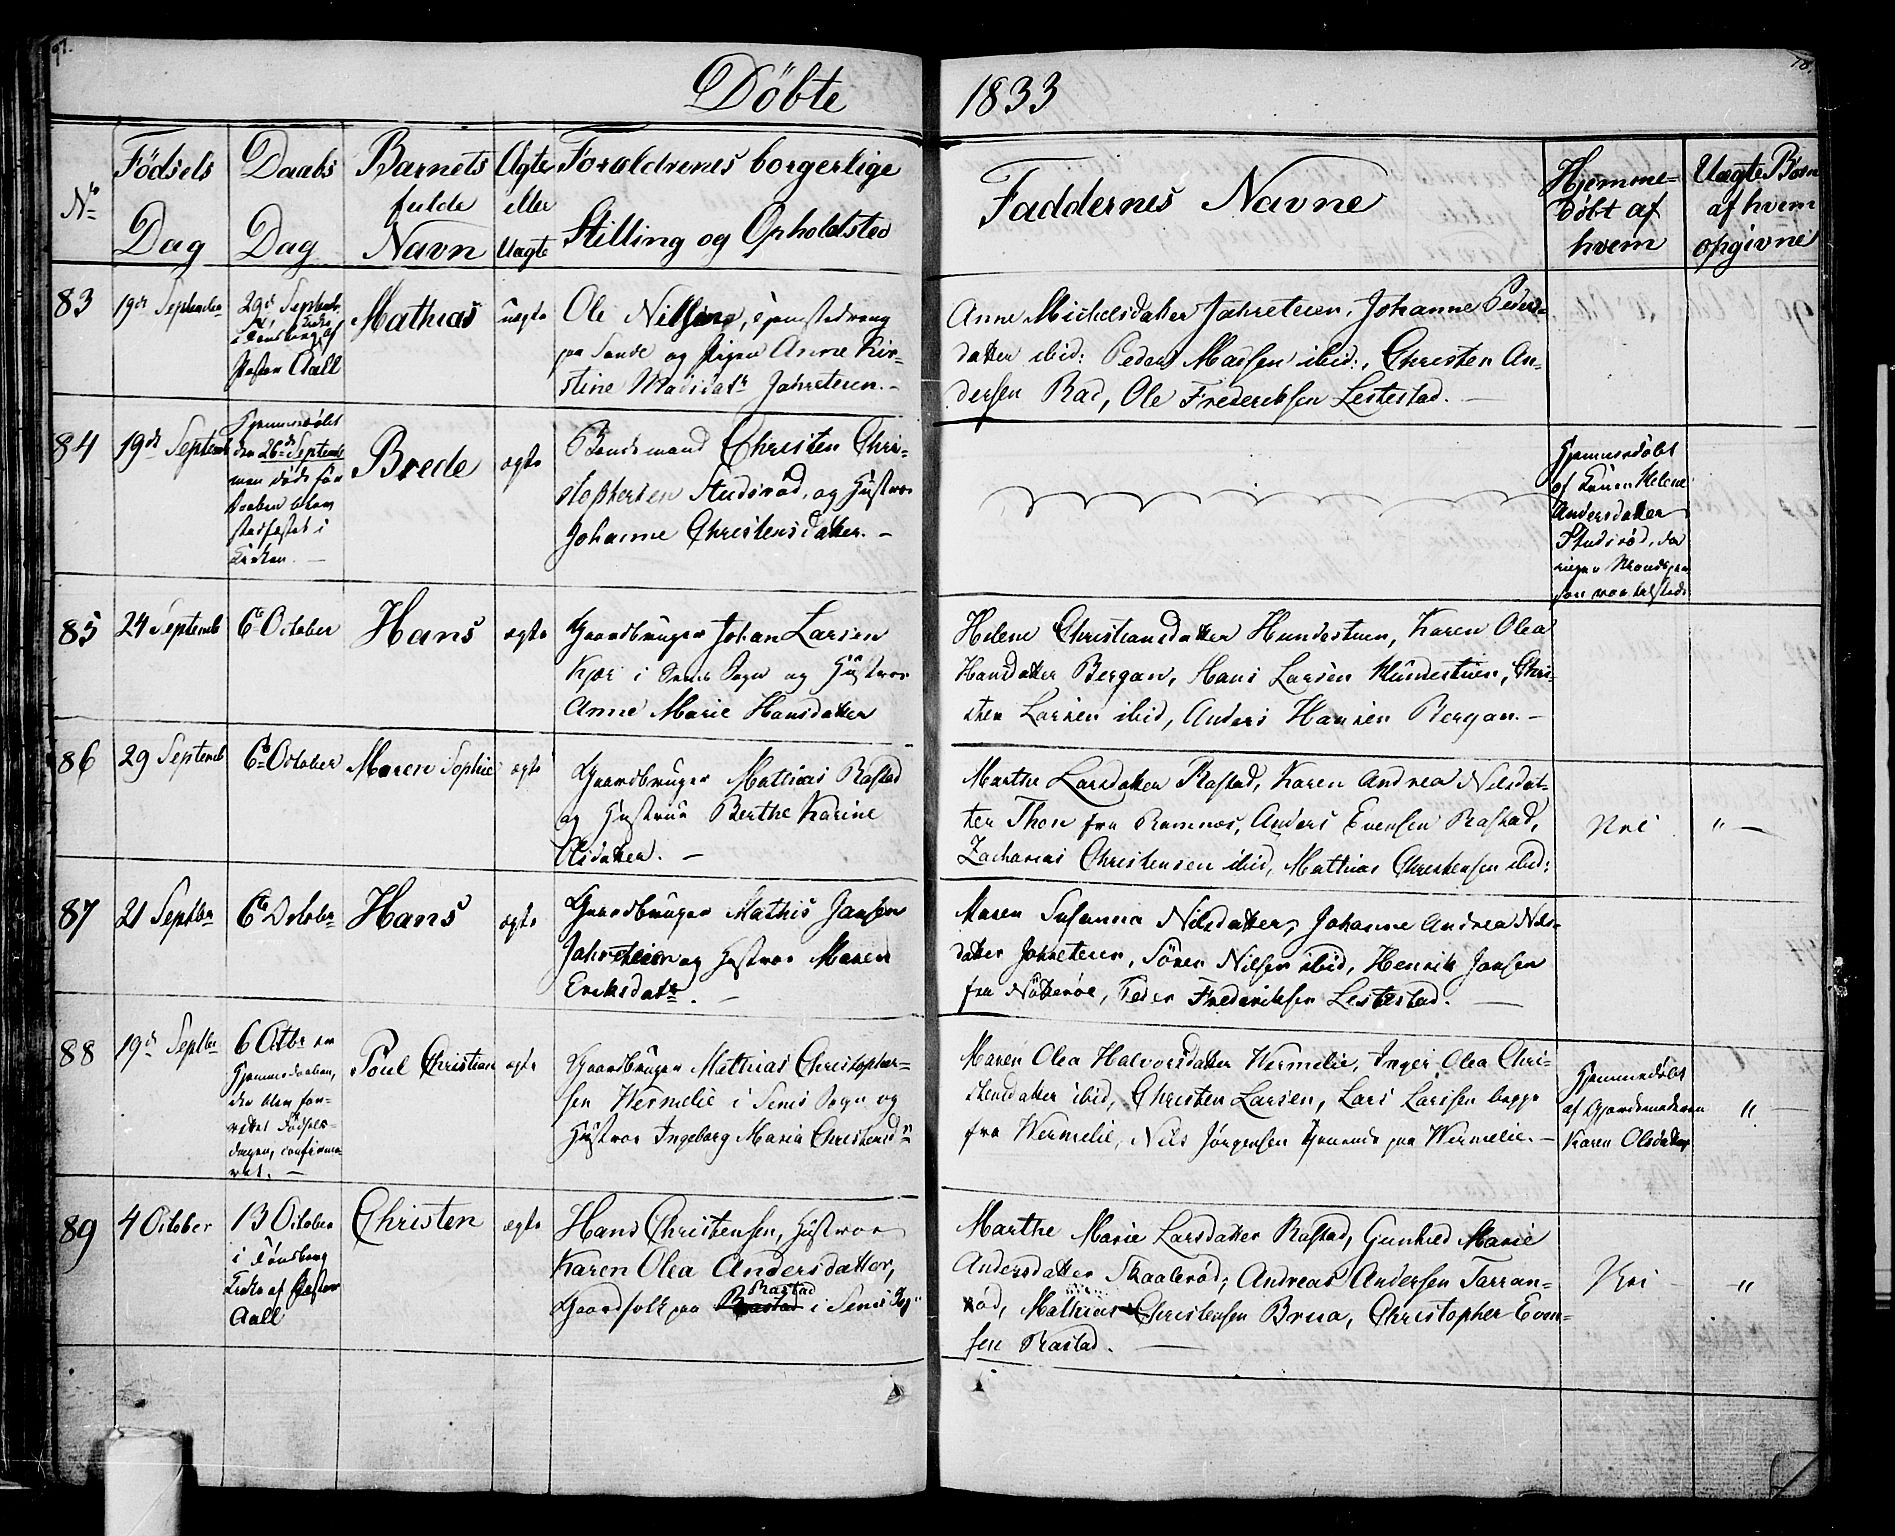 97.
Döbte 1833
No
Födsels Dag
Daabs Dag
Barnets fulde Navn
Ægte eller Uægte
Forældrenes borgerlige Stilling og Opholdsted
Faddernes Navne
Hjemme-döbt af hvem
Uægte Börn af hvem opgivne
83
19de September
29de Septemb.
Kirke af
Pastor Aall
Mathias
uægte
Ole Nilsen,
paa Sande og Pigen Anne Kir-
stine Madsdatr Jahreteien. -
Anne Michelsdatter Jahreteien, Johanne Peders-
datter ibid: Peder Madsen ibid:, Christen An-
dersen Rad, Ole Frederiksen Lestestad. -
84
19de Septemb
Hjemmedöbt
den 26de Septemb
men döde för
Daaben blev
stadfæstet i
Kirken. -
Brede
ægte
Bondemand Christen Chri-
stophersen Studsröd, og Hustroe
Johanne Christensdatter. -
Hjemmedöbt
af Konen Helene
Andersdatter
Studsröd, da
ingen Mandsper
son var tilstede
85
24 Septemb
6te October
Hans
ægte
Gaardbruger Johan Larsen
Kjær i Sems Sogn og Hustroe
Anne Marie Hansdatter
Helene Christiansdatter Hundestuen, Karen Olea
Hansdatter Bergan, Hans Larsen Hundestuen, Chri-
sten Larsen ibid, Anders Hansen Bergan. -
86
29 Septemb
6te October
Maren Sophie
ægte
Gaardbruger Mathias Rastad
og Hustrue Berthe Karine
Olsdatter. -
Marthe Larsdatter Rastad, Karen Andrea Nilsdat-
ter Thon fra Ramnæs, Anders Evensen Rastad,
Zacharias Christensen ibid, Mathias Christensen ibid:
Nei
" -
87
21 Septbr
6te Octobr
Hans
ægte
Gaardbruger Mathis Jansen
Jahreteien og Hustroe Maren
Eriksdatr. -
Maren Susanna Nilsdatter, Johanne Andrea Nils-
datter Jahreteien, Sören Nilsen ibid, Henrik Jansen
fra Nötteröe, Peder Frederiksen Lestestad. -
88
19de Septbr
6 Octbr er
Hjemmedaaben,
der blev for-
rettet Födsels-
dagen, confirme-
ret. -
Poul Christian
ægte
Gaardbruger Mathias Christopher-
sen Wermelie i Sems Sogn og
Hustroe Ingeborg Maria Christensdr
Maren Olea Halvorsdatter Wermelie, Inger Olea Chri-
stensdatter ibid, Christen Larsen, Lars Larssen begge
fra Wermelie, Nils Jörgensen tjenende paa Wermelie. -
Hjemmedöbt
af Gjordemoderen
Karen Olsdatter
" -
89
4 October
13 October
i Tönsberg
Kirke af Pastor
Aall
Christen
ægte
Hans Christensen, Hustroe
Karen Olea Andersdatter,
Gaardfolk paa Rastad i Sems Sogn
Marthe Marie Larsdatter Rastad, Gunhild Marie
Andersdatter Skaaleröd, Andreas Andersen Tarran-
röd, Mathias Christensen Brua, Christopher Even-
sen Rastad. -
Nei
"